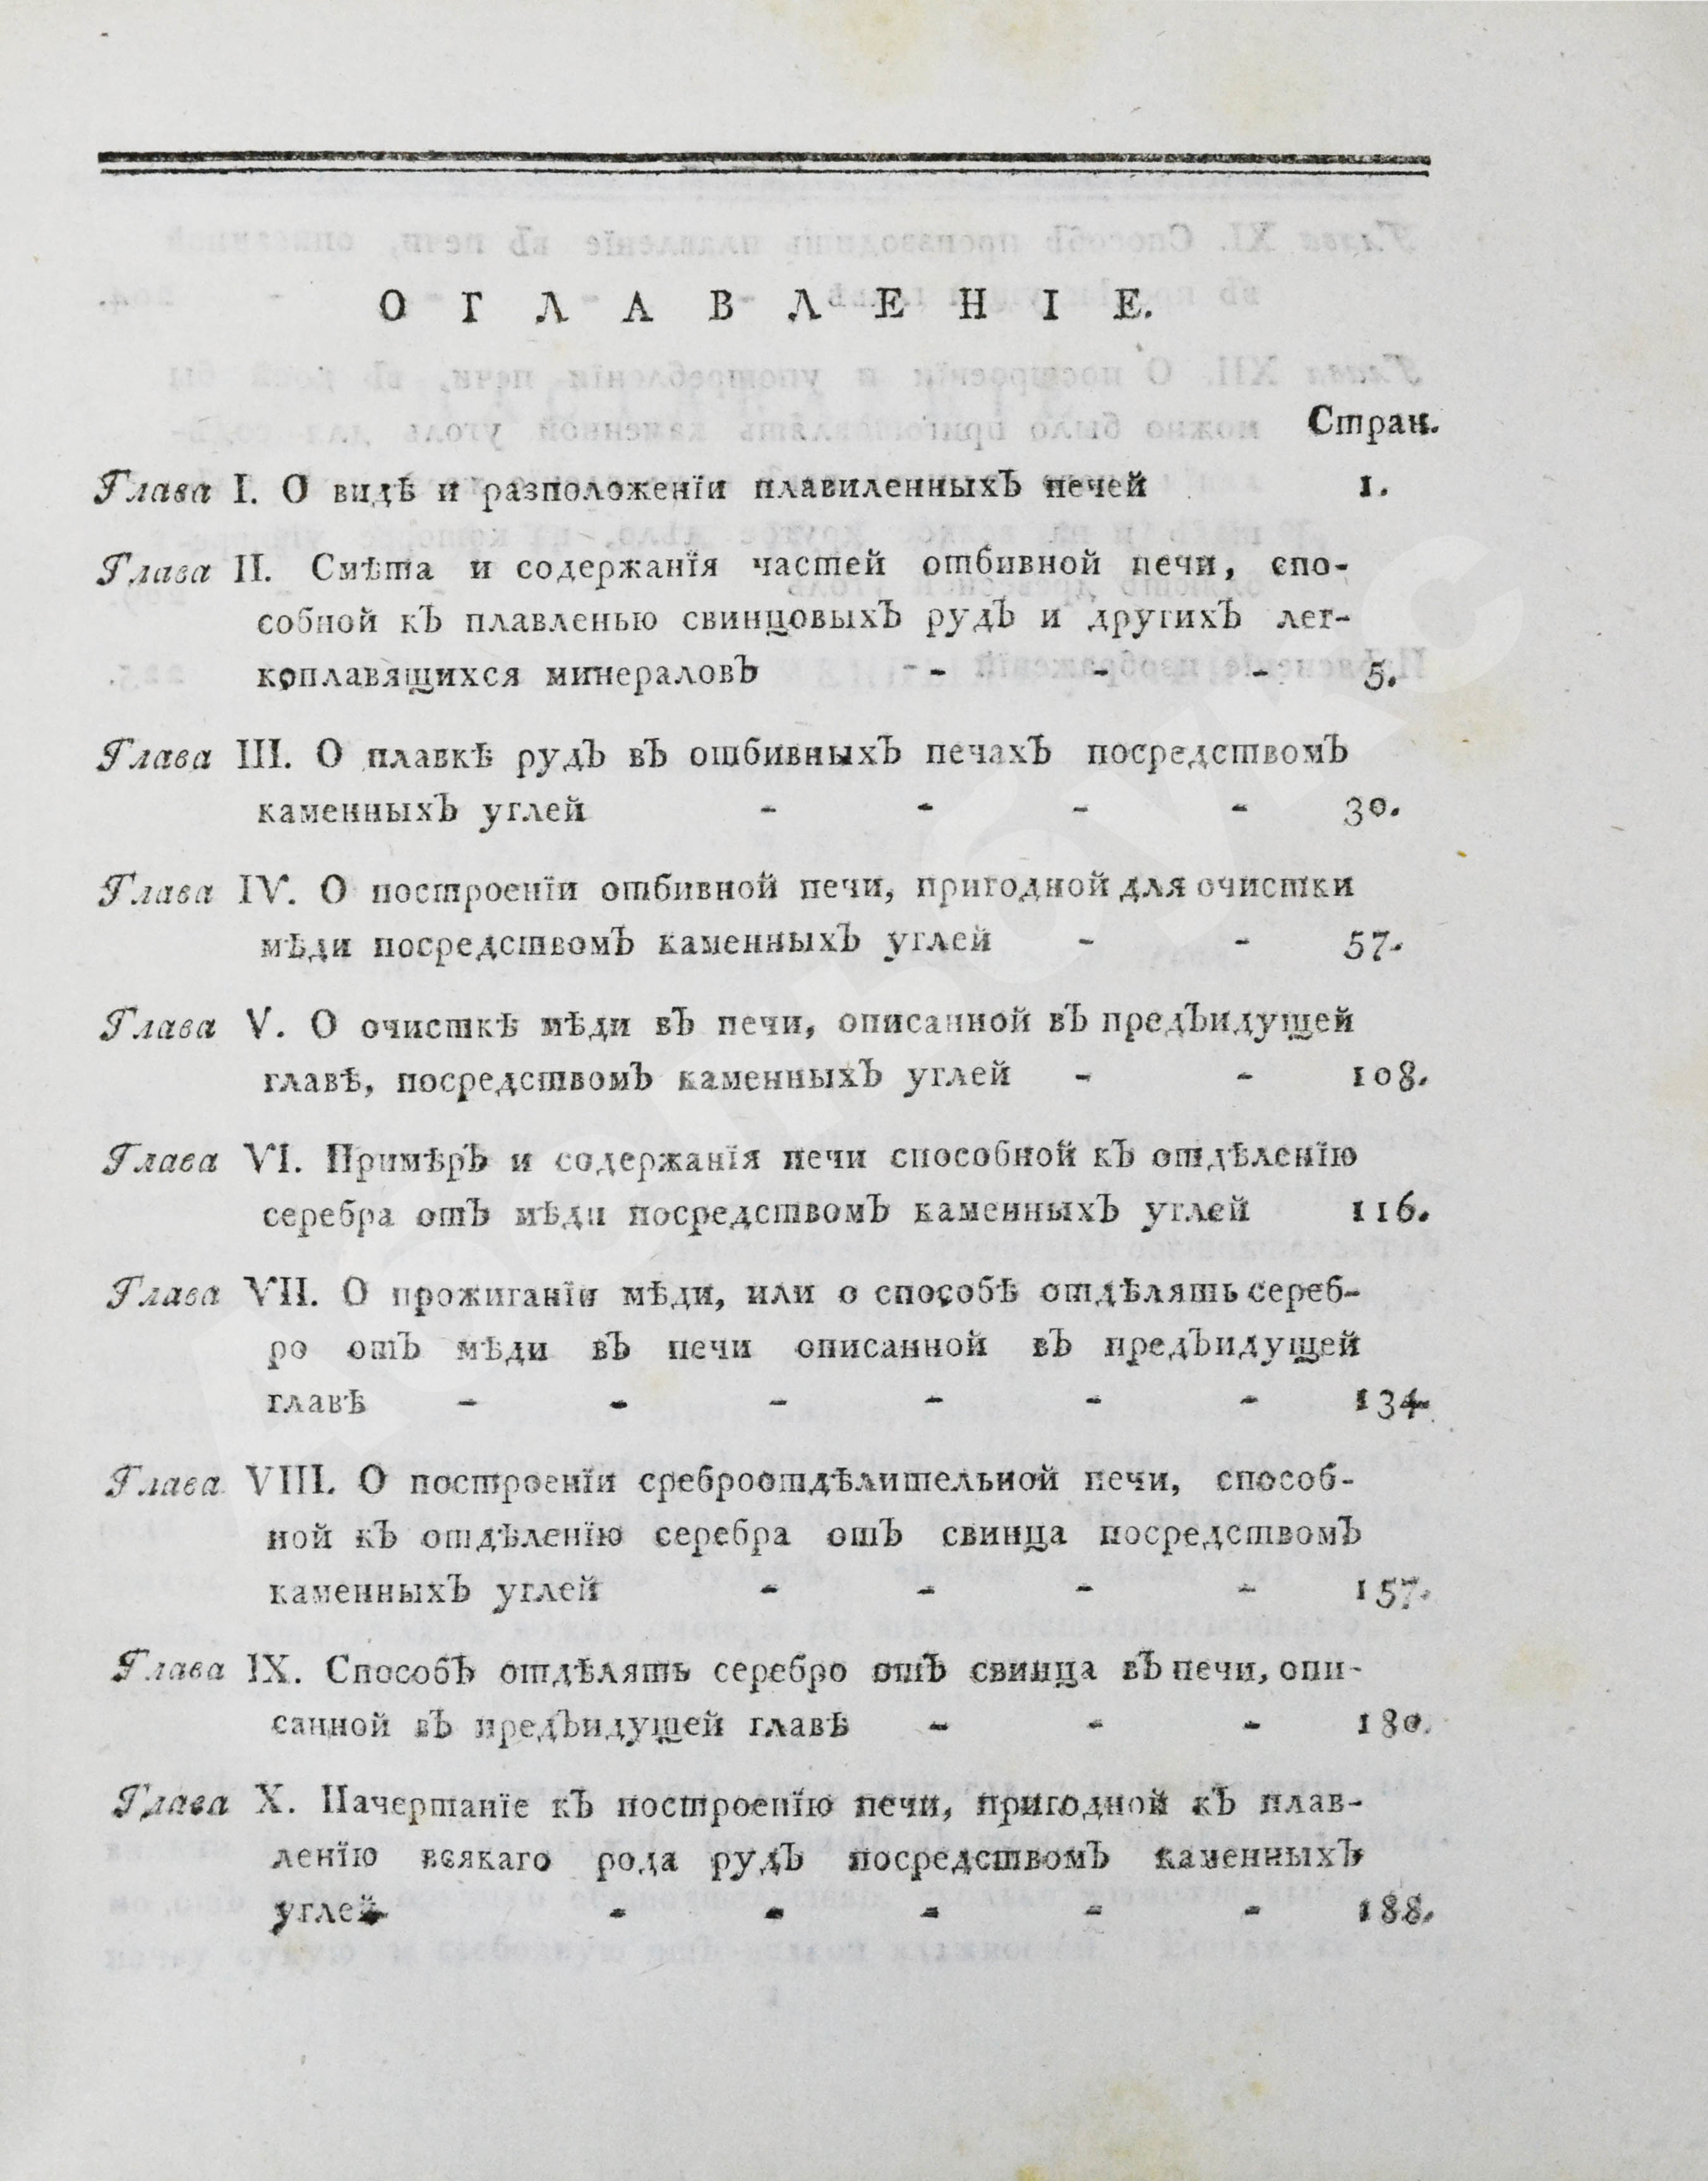 ОГЛАВЛЕНІЕ.
Стран.
Глава I. О видѣ и разположенїи плавиленныхЪ печей 1.
Глава II. Смѣта и содержанїя частей отбивной печи, спо-
собной кЪ плавленью свинцовыхЪ рудЪ и другихЪ лег-
коплавящихся минераловЪ - - - 5.
Глава III. О плавкѣ рудЪ вЪ отбивныхЪ печахЪ посредствомЪ
каменныхЪ углей - - - - 30.
Глава IV. О построенїи отбивной печи, пригодной для очистки
мѣди посредствомЪ каменныхЪ углей - - 57.
Глава V. О очисткѣ мѣди вЪ печи, описанной вЪ предЪидущей
главѣ, посредствомЪ каменныхЪ углей - - 108.
Глава VI. ПримѣрЪ и содержанїя печи способной кЪ отдѣленїю
серебра отЪ мѣди посредствомЪ каменныхЪ углей 116.
Глава VII. О прожиганїи мѣди, или о способѣ отдѣлять сереб-
ро отЪ мѣди вЪ печи описанной вЪ предЪидущей
главѣ - - - - - - 134.
Глава VIII. О построенїи среброотдѣлительной печи, способ-
ной кЪ отдѣленїю серебра отЪ свинца посредствомЪ
каменныхЪ углей - - - - 157.
Глава IX. СпособЪ отдѣлять серебро отЪ свинца вЪ печи, опи-
санной вЪ предЪидущей главѣ - - - 180.
Глава X. Начертанїе кЪ построенїю печи, пригодной кЪ плав-
ленїю всякаго рода рудЪ посредствомЪ каменныхЪ
углей - - - - - - 188.